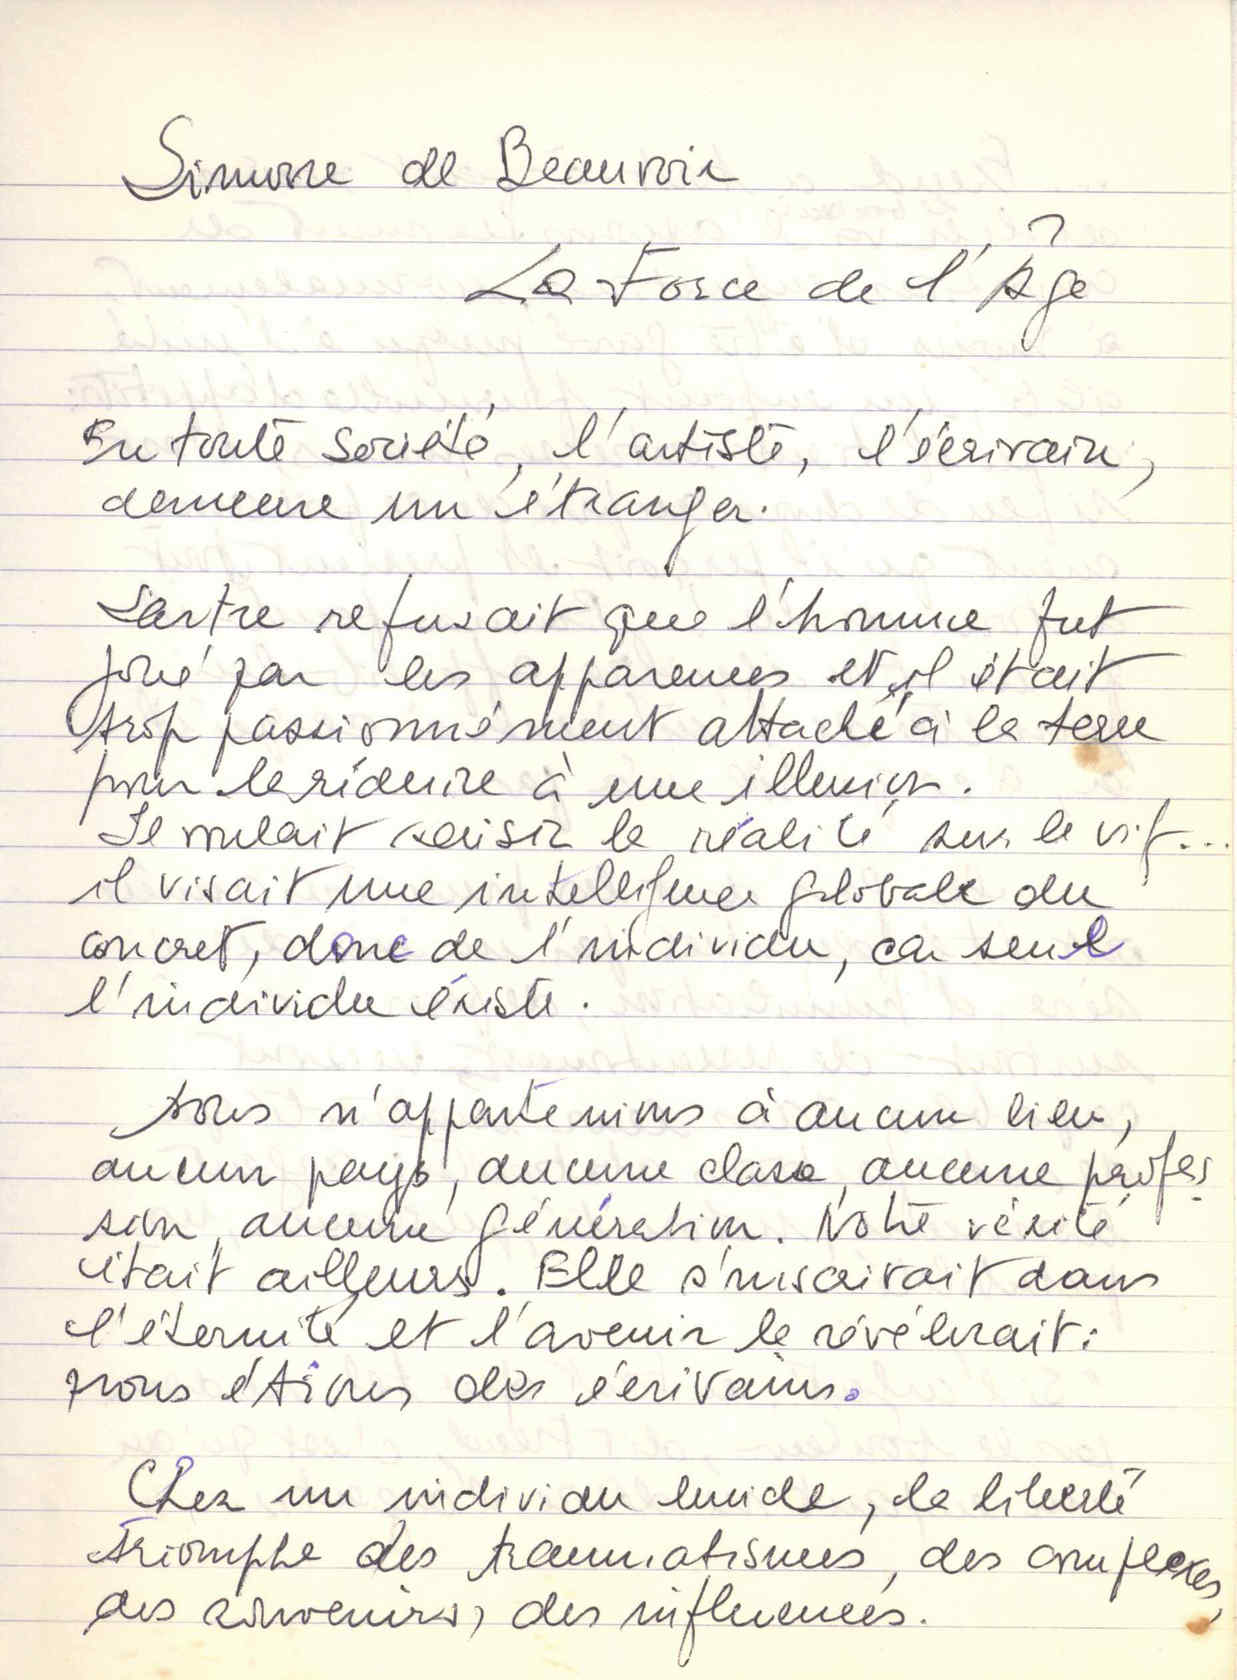 Simone de Beauvoir
La Force de l'Âge
En toute société, l'artiste, l'écrivain,
demeure un étranger.
Sartre refusait que l'homme fut
joué par les apparences et il était
trop passionnément attaché à la terre
pour la réduire à une illusion.
Il voulait saisir la réalité sur le vif...
il visait une intelligence globale du
concret, donc de l'individu, car seul
l'individu éxiste.
Nous n'appartenions à aucun lieu,
aucun pays, aucune classe, aucune profes
sion, aucune génération. Notre vérité
était ailleurs. Elle s'inscrivait dans
l'éternité et l'avenir la révélerait :
nous étions des écrivains.
Chez un individu lucide, la liberté
triomphe des traumatismes, des complexes,
des souvenirs, des influences.